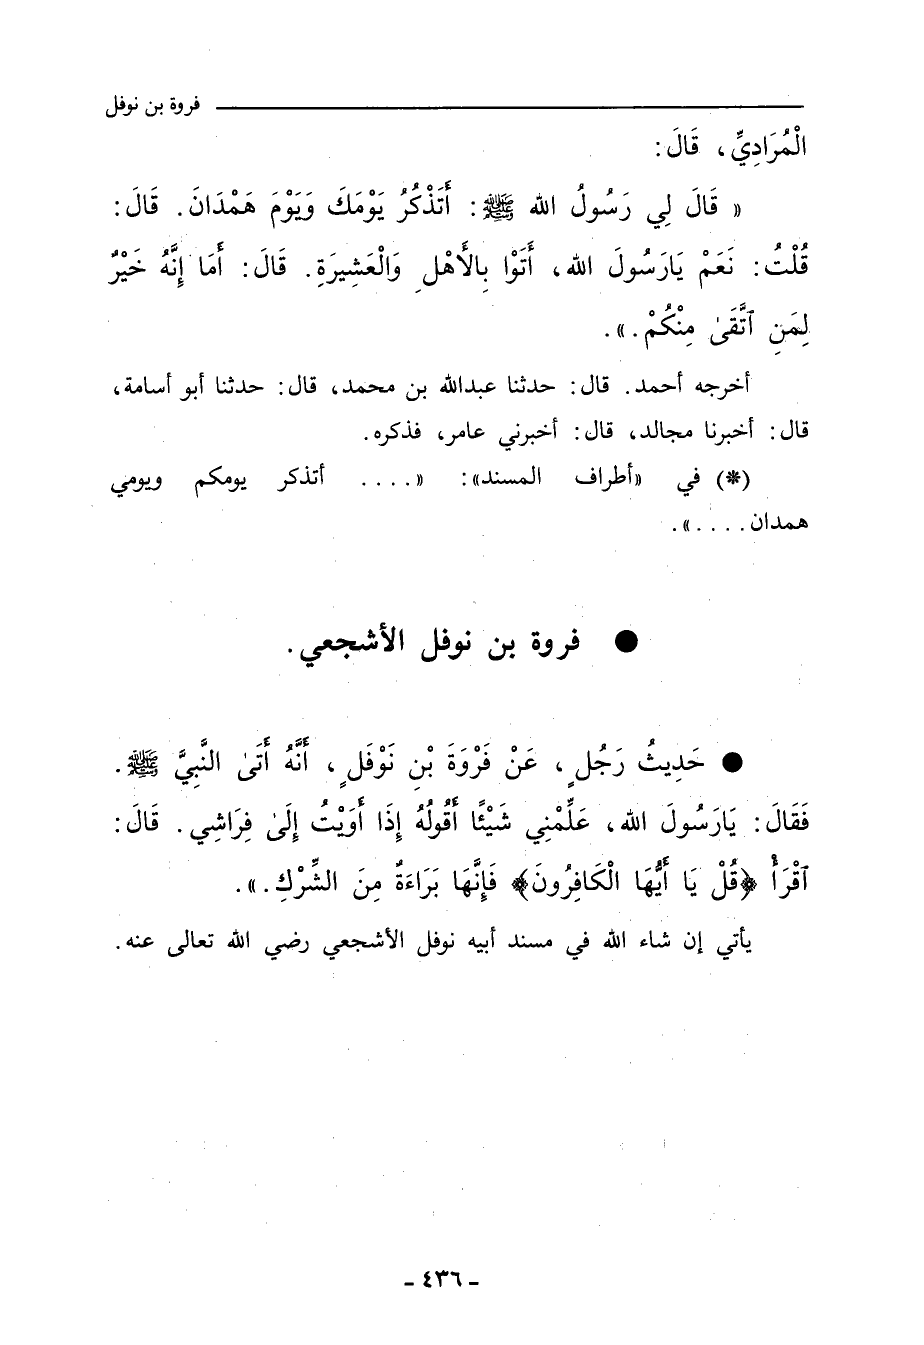 فروة بن نوفل
الْمُرَادِيِّ، قَالَ:
« قَالَ لِي رَسُولُ الله ﷺ: أَتَذْكُرُ يَوْمَكَ وَيَوْمَ هَمْدَانَ. قَالَ:
قُلْتُ: نَعَمْ يَارَسُولَ الله، أَتَوْا بِالأَهْلِ وَالْعَشِيرَةِ. قَالَ: أَمَا إِنَّهُ خَيْرٌ
لِمَنِ ٱتَّقَىٰ مِنْكُمْ.».
أخرجه أحمد. قال: حدثنا عبدالله بن محمد، قال: حدثنا أبو أسامة،
قال: أخبرنا مجالد، قال: أخبرني عامر، فذكره.
(*) في «أطراف المسند»: «.... أتذكر يومكم ويومي
همدان....».
● فروة بن نوفل الأشجعي.
● حَدِيثُ رَجُلٍ، عَنْ فَرْوَةَ بْنِ نَوْفَلٍ، أَنَّهُ أَتَىٰ النَّبِيَّ ﷺ.
فَقَالَ: يَارَسُولَ الله، عَلِّمْنِي شَيْئًا أَقُولُهُ إِذَا أَوَيْتُ إِلَىٰ فِرَاشِي. قَالَ:
ٱقْرَأْ ﴿قُلْ يَا أَيُّهَا الْكَافِرُونَ﴾ فَإِنَّهَا بَرَاءَةٌ مِنَ الشِّرْكِ.».
يأتي إن شاء الله في مسند أبيه نوفل الأشجعي رضي الله تعالى عنه.
- ٤٣٦ -